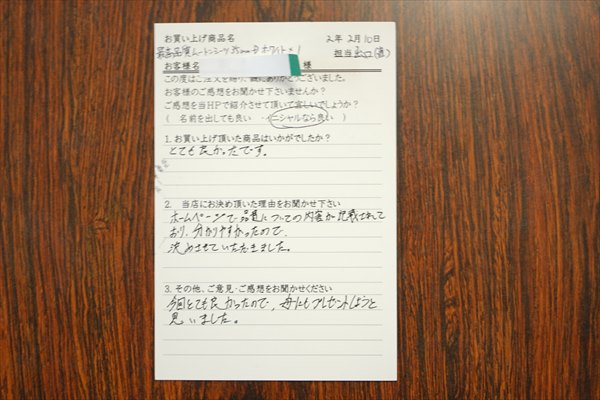 お買い上げ商品名
2年 2月10日
最高品質ムートンシーツ 35mm D ホワイト×1
担当 出口(直)
お客様名 様
この度はご注文を賜り、誠にありがとうございました。
お客様のご感想をお聞かせ下さいませんか?
ご感想を当HPで紹介させて頂いて宜しいでしょうか?
( 名前を出しても良い ・ イニシャルなら良い )
1. お買い上げ頂いた商品はいかがでしたか?
とても良かったです。
2. 当店にお決め頂いた理由をお聞かせ下さい
ホームページで品質についての内容が記載されて
おり、分かりやすかったので、
決めさせていただきました。
3. その他、ご意見・ご感想をお聞かせください
今回とても良かったので、母にもプレゼントしようと
思いました。